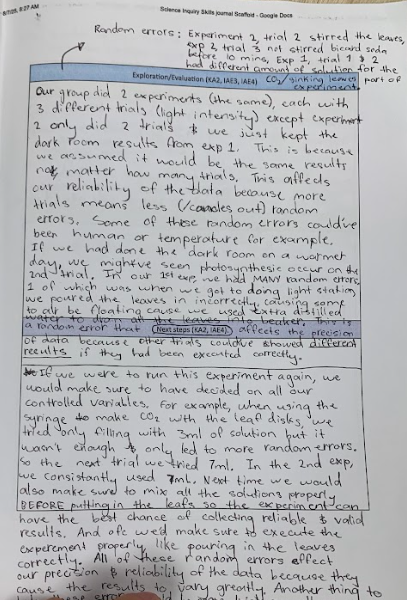 8/7/25, 8:27 AM
Science Inquiry Skills journal Scaffold - Google Docs
Random errors: Experiment 2, trial 2 stirred the leaves,
exp 2, trial 3 not stirred bicarb soda
before 10 mins, Exp 1, trial 1 & 2
had different amount of solution for the
part of
Exploration/Evaluation (KA2, IAE3, IAE4) CO2/sinking leaves
experiment
Our group did 2 experiments (the same), each with
3 different trials (light intensity) except experiment
2 only did 2 trials & we just kept the
dark room results from exp 1. This is because
we assumed it would be the same results
no matter how many trials. This affects
our reliability of the data because more
trials means less (/cancles out) random
errors. Some of these random errors could've
been human or temperature for example.
If we had done the dark room on a warmer
day, we might've seen photosynthesis occur on the
2nd trial. In our 1st exp, we had MANY random errors
1 of which was when we got to doing light station,
we poured the leaves in incorrectly, causing some
to alr be floating cause we used extra distilled
water to leaves into beaker. This is
a random error that Next steps (KA2, IAE4) affects the precision
of data because other trials could've showed different
results if they had been executed correctly.
If we were to run this experiment again, we
would make sure to have decided on all our
controlled variables. For example, when using the
syringe to make CO2 with the leaf disks, we
tried only filling with 3ml of solution but it
wasn't enough & only led to more random errors.
So the next trial we tried 7ml. In the 2nd exp,
we consistantly used 7ml. Next time we would
also make sure to mix all the solutions properly
BEFORE putting in the leafs so the experiment can
have the best chance of collecting reliable & valid
results. And ofc we'd make sure to execute the
experement properly like pouring in the leaves
correctly. All of these random errors effect
our precision & reliability of the data because they
cause the results to vary greatly. Another thing to
these errors